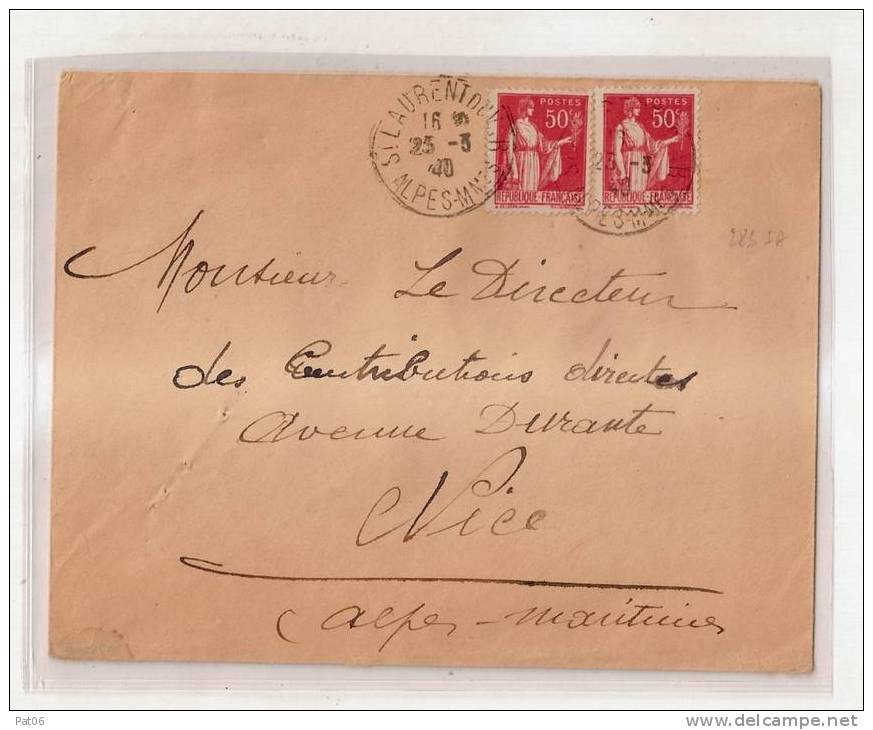 ST LAURENT DU VAR
16
23 -3
40
ALPES-MMES
POSTES
50c
REPUBLIQUE-FRANÇAISE
POSTES
50c
REPUBLIQUE-FRANÇAISE
23 -3
40
Monsieur Le Directeur
des Contributions directes
Avenue Durante
Nice
Alpes-maritimes
Pat06
www.delcampe.net